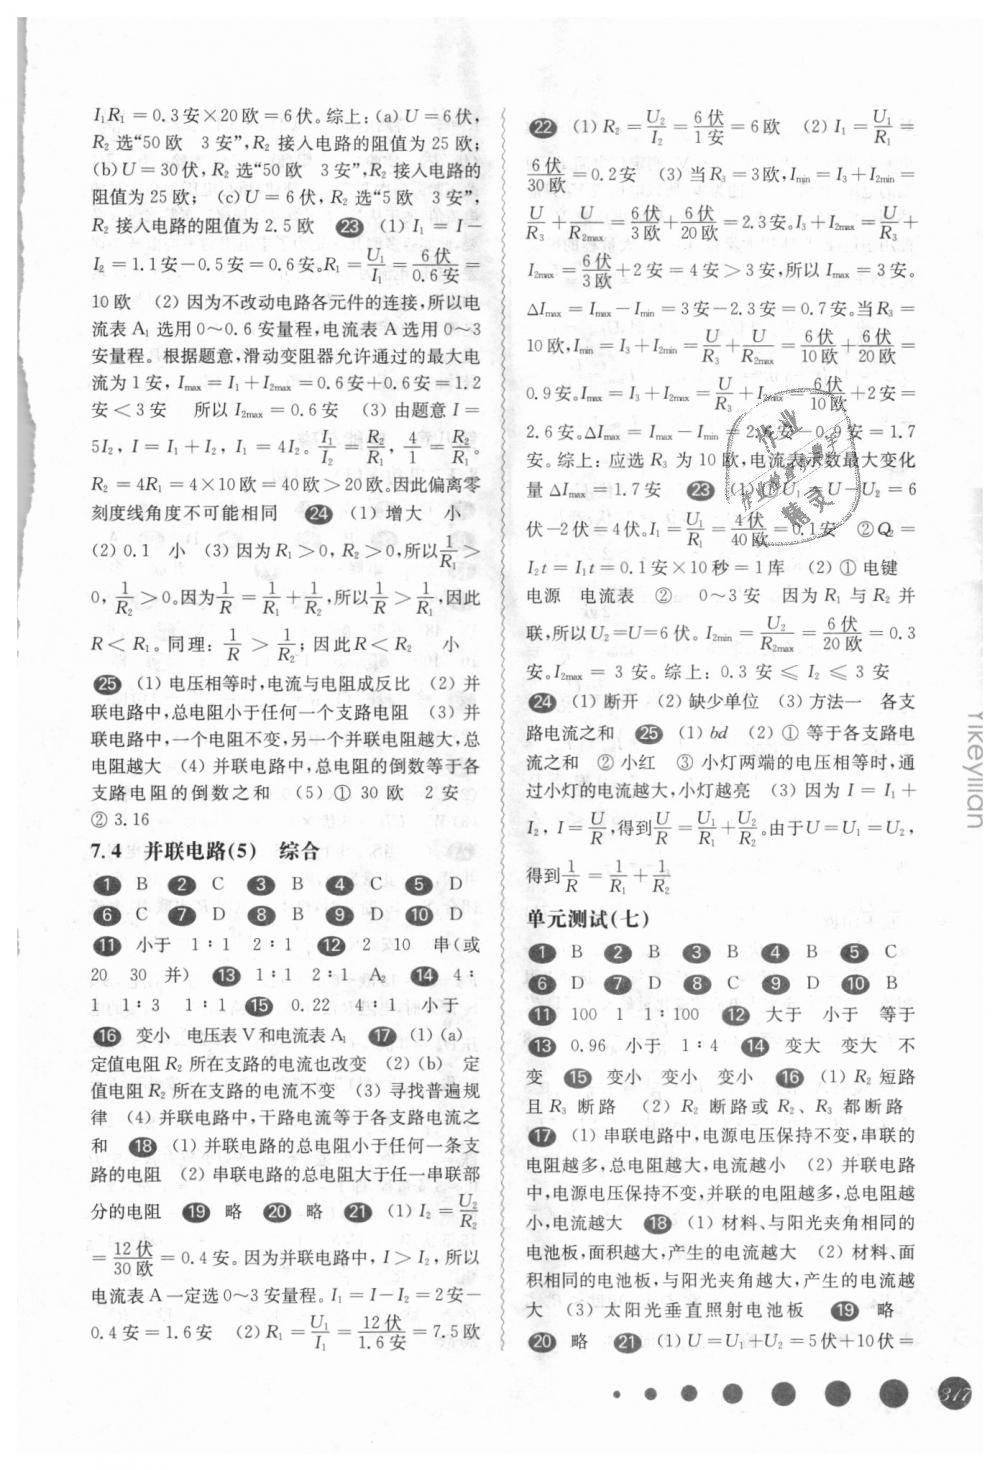 I₁R₁＝0.3安×20欧＝6伏。综上：(a)U＝6伏，
R₂选“50欧　3安”，R₂接入电路的阻值为25欧；
(b)U＝30伏，R₂选“50欧　3安”，R₂接入电路的
阻值为25欧；(c)U＝6伏，R₂选“5欧　3安”，
R₂接入电路的阻值为2.5欧　23　(1) I₁＝I－
I₂＝1.1安－0.5安＝0.6安。R₁＝U₁/I₁＝6伏/0.6安＝
10欧　(2) 因为不改动电路各元件的连接，所以电
流表A₁选用0～0.6安量程，电流表A选用0～3
安量程。根据题意，滑动变阻器允许通过的最大电
流为1安，Imax＝I₁＋I₂max＝0.6安＋0.6安＝1.2
安＜3安　所以I₂max＝0.6安　(3) 由题意I＝
5I₂，I＝I₁＋I₂，I₁＝4I₂。I₁/I₂＝R₂/R₁，4/1＝R₂/R₁。
R₂＝4R₁＝4×10欧＝40欧＞20欧。因此偏离零
刻度线角度不可能相同　24　(1) 增大　小
(2) 0.1　小　(3) 因为R₁＞0，R₂＞0，所以1/R₁＞
0，1/R₂＞0。因为1/R＝1/R₁＋1/R₂，所以1/R＞1/R₁，因此
R＜R₁。同理：1/R＞1/R₂；因此R＜R₂　小
25　(1) 电压相等时，电流与电阻成反比　(2) 并
联电路中，总电阻小于任何一个支路电阻　(3) 并
联电路中，一个电阻不变，另一个并联电阻越大，总
电阻越大　(4) 并联电路中，总电阻的倒数等于各
支路电阻的倒数之和　(5) ① 30欧　2安
② 3.16
7.4　并联电路(5)　综合
1　B　2　C　3　B　4　C　5　D
6　C　7　D　8　B　9　D　10　D
11　小于　1∶1　2∶1　12　2　10　串(或
20　30　并)　13　1∶1　2∶1　A₂　14　4∶
1　1∶3　1∶1　15　0.22　4∶1　小于
16　变小　电压表V和电流表A₁　17　(1) (a)
定值电阻R₂所在支路的电流也改变　(2) (b)　定
值电阻R₂所在支路的电流不变　(3) 寻找普遍规
律　(4) 并联电路中，干路电流等于各支路电流之
和　18　(1) 并联电路的总电阻小于任何一条支
路的电阻　(2) 串联电路的总电阻大于任一串联部
分的电阻　19　略　20　略　21　(1) I₂＝U₂/R₂
＝12伏/30欧＝0.4安。因为并联电路中，I＞I₂，所以
电流表A一定选0～3安量程。I₁＝I－I₂＝2安－
0.4安＝1.6安　(2) R₁＝U₁/I₁＝12伏/1.6安＝7.5欧
22　(1) R₂＝U₂/I₂＝6伏/1安＝6欧　(2) I₁＝U₁/R₁＝
6伏/30欧＝0.2安　(3) 当R₃＝3欧，Imin＝I₃＋I₂min＝
U/R₃＋U/R₂max＝6伏/3欧＋6伏/20欧＝2.3安。I₃＋I₂max＝U/R₃＋
I₂max＝6伏/3欧＋2安＝4安＞3安，所以Imax＝3安。
ΔImax＝Imax－Imin＝3安－2.3安＝0.7安。当R₃＝
10欧，Imin＝I₃＋I₂min＝U/R₃＋U/R₂max＝6伏/10欧＋6伏/20欧＝
0.9安。Imax＝I₃＋I₂max＝U/R₃＋I₂max＝6伏/10欧＋2安＝
2.6安。ΔImax＝Imax－Imin＝2.6安－0.9安＝1.7
安。综上：应选R₃为10欧，电流表示数最大变化
量ΔImax＝1.7安　23　(1) ① U₁＝U－U₂＝6
伏－2伏＝4伏。I₁＝U₁/R₁＝4伏/40欧＝0.1安　② Q₂＝
I₂t＝I₁t＝0.1安×10秒＝1库　(2) ① 电键
电源　电流表　②　0～3安　因为R₁与R₂并
联，所以U₂＝U＝6伏。I₂min＝U₂/R₂max＝6伏/20欧＝0.3
安。I₂max＝3安。综上：0.3安≤I₂≤3安
24　(1) 断开　(2) 缺少单位　(3) 方法一　各支
路电流之和　25　(1) bd　(2) ① 等于各支路电
流之和　② 小红　③ 小灯两端的电压相等时，通
过小灯的电流越大，小灯越亮　(3) 因为I＝I₁＋
I₂，I＝U/R，得到U/R＝U₁/R₁＋U₂/R₂。由于U＝U₁＝U₂，
得到1/R＝1/R₁＋1/R₂
单元测试(七)
1　B　2　B　3　B　4　B　5　C
6　D　7　D　8　C　9　D　10　B
11　100　1　1∶100　12　大于　小于　等于
13　0.96　小于　1∶4　14　变大　变大　不
变　15　变小　变小　变小　16　(1) R₂短路
且R₃断路　(2) R₂断路或R₂、R₃都断路
17　(1) 串联电路中，电源电压保持不变，串联的
电阻越多，总电阻越大，电流越小　(2) 并联电路
中，电源电压保持不变，并联的电阻越多，总电阻越
小，电流越大　18　(1) 材料、与阳光夹角相同的
电池板，面积越大，产生的电流越大　(2) 材料、面
积相同的电池板，与阳光夹角越大，产生的电流越
大　(3) 太阳光垂直照射电池板　19　略
20　略　21　(1) U＝U₁＋U₂＝5伏＋10伏＝
作业
作业检查小助手
精灵
Yikeyilian
317